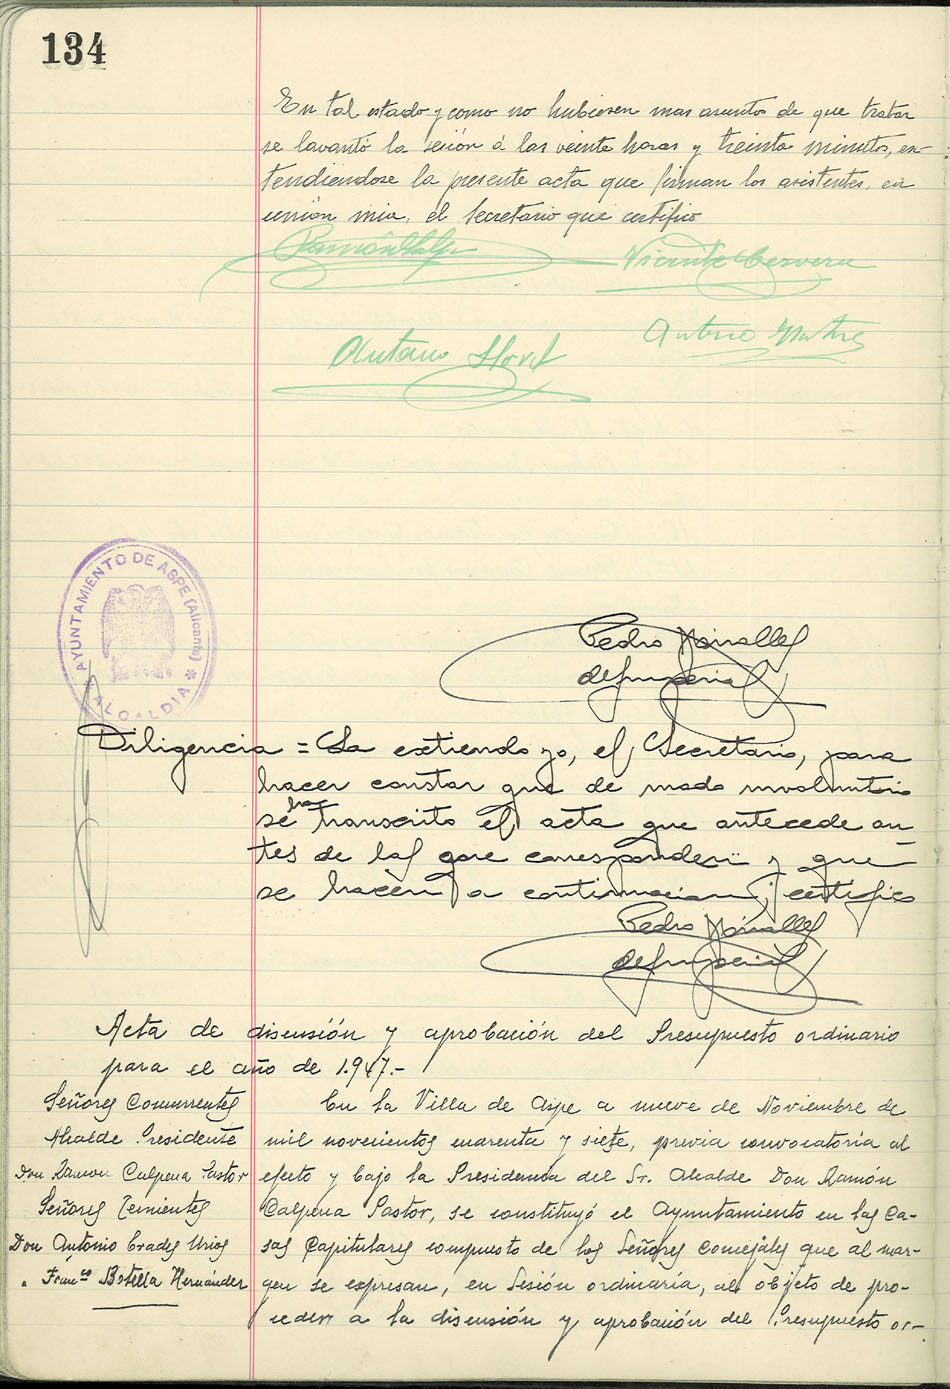 134
En tal estado y como no hubiesen mas asuntos de que tratar
se lavantó la sesión á las veinte horas y treinta minutos, ex-
tendiendose la presente acta que firman los asistentes, en
unión mia, el Secretario que certifico
Vicente Cervera
Antonio
Antonio
AYUNTAMIENTO DE ASPE (Alicante)
* ALCALDIA *
Pedro
Diligencia = La extiendo yo, el Secretario, para
hacer constar que de modo involuntario
se ha transcrito el acta que antecede an-
tes de las que corresponden y que
se hacen a continuacion; certifico
Pedro
Acta de discusión y aprobación del Presupuesto ordinario
para el año de 1.947.-
Señores Concurrentes
Alcalde Presidente
Don Ramon Calpena Pastor
Señores Tenientes
Don Antonio Crades Urios
" Franco Botella Hernández
En la Villa de Aspe a nueve de Noviembre de
mil novecientos cuarenta y siete, previa convocatoria al
efecto y bajo la Presidencia del Sr. Alcalde Don Ramón
Calpena Pastor, se constituyó el Ayuntamiento en las Ca-
sas Capitulares compuesto de los Señores Concejales que al mar-
gen se expresan, en Sesión ordinaria, al objeto de pro-
ceder a la discusión y aprobación del Presupuesto or-